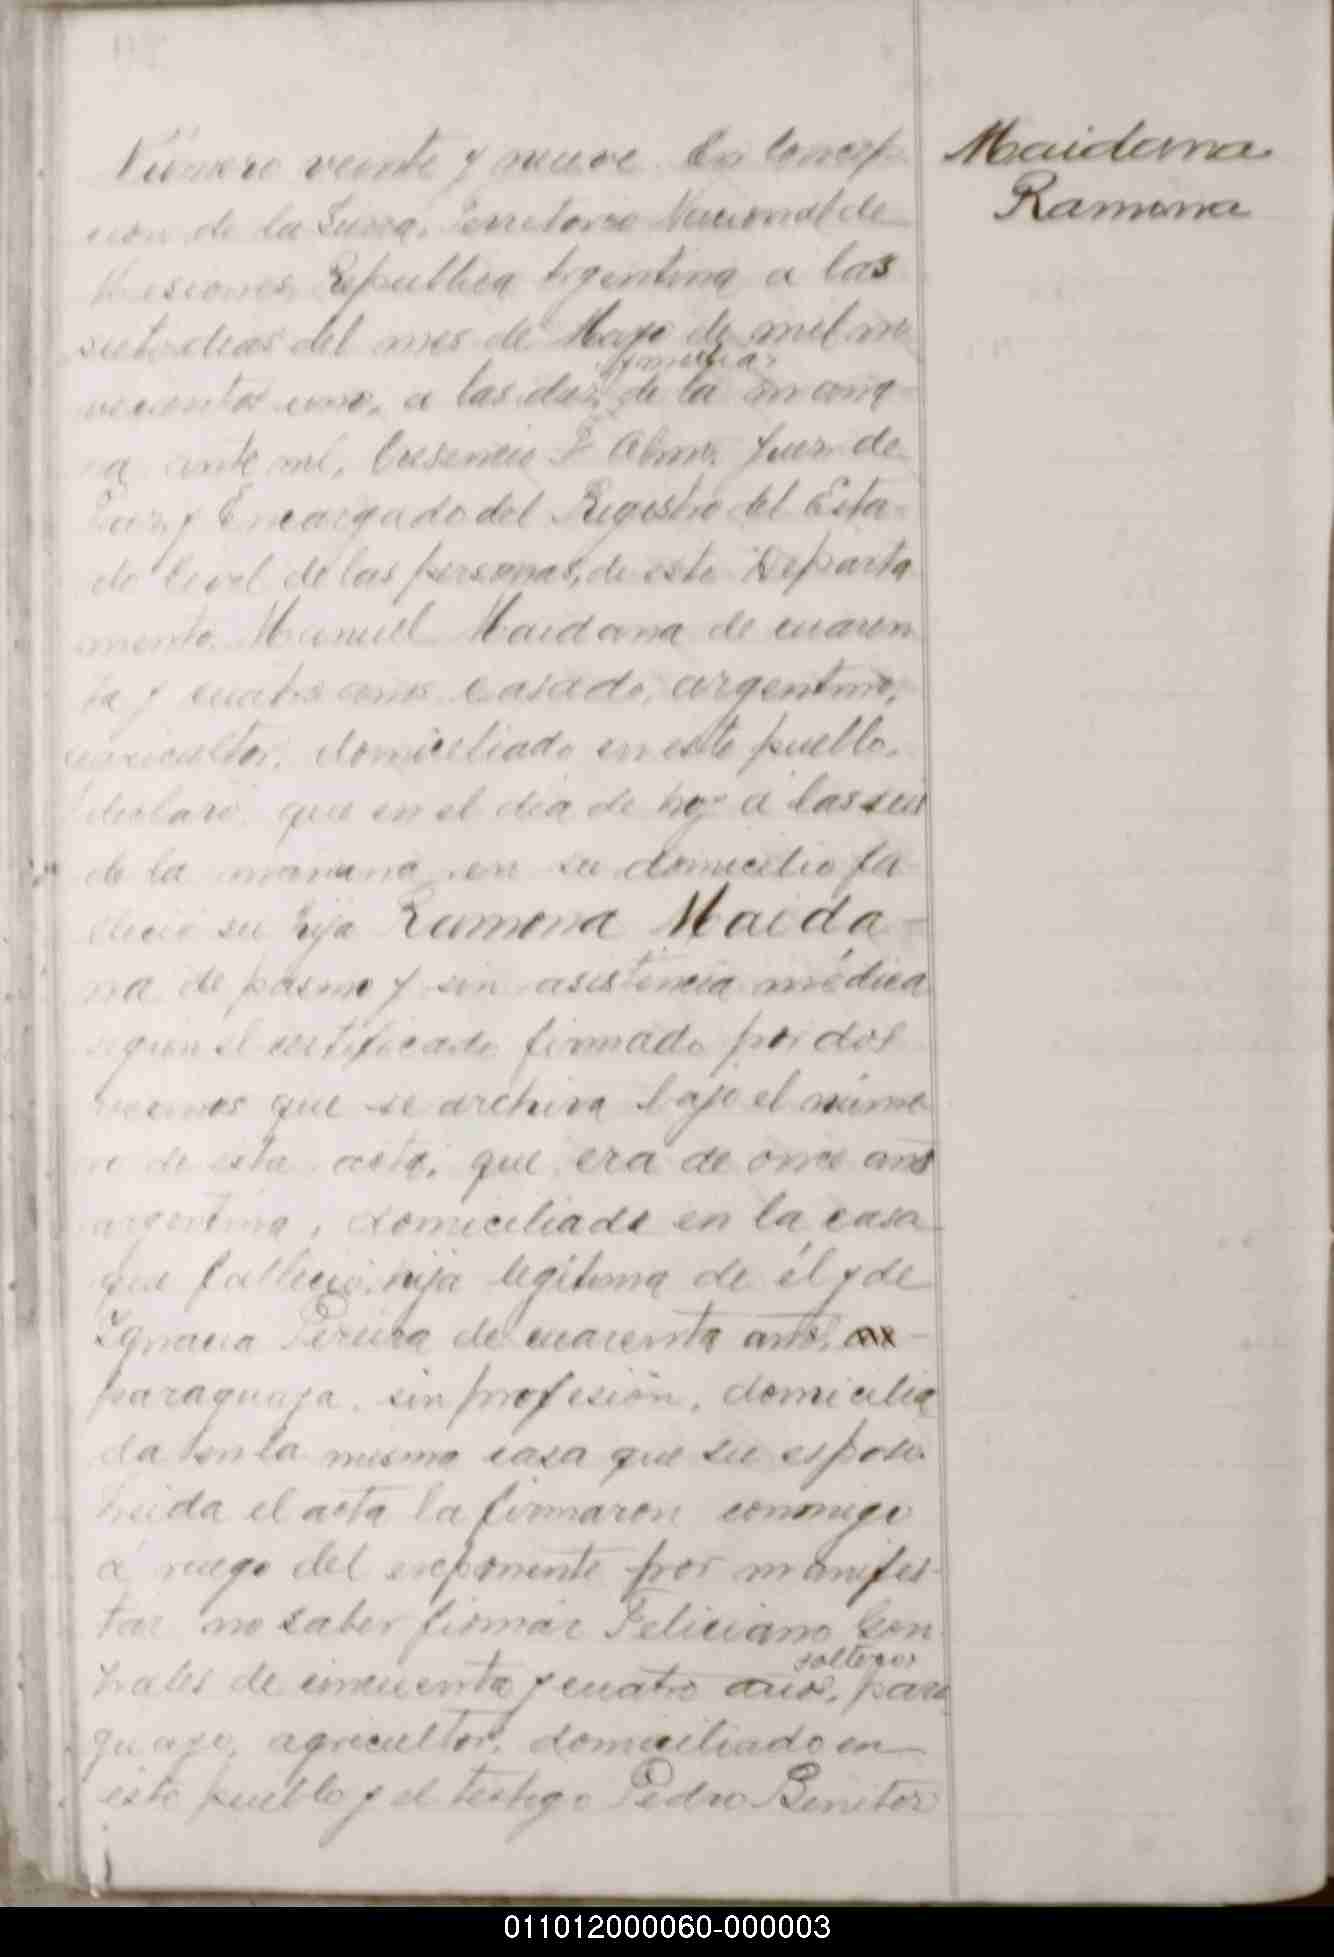 Maidana
Ramona
Número veinte y nueve En Concep
cion de la Sierra, Territorio Nacional de
Misiones, Republica Argentina a las
siete dias del mes de Mayo de mil no
y media
vecientos uno, a las diez de la maña
na ante mí, Juez de
Paz y Encargado del Registro del Esta
do Civil de las personas, de este Departa
mento, Manuel Maidana de cuaren
ta y cuatro años casado, argentino,
agricultor, domiciliado en este pueblo,
declaró que en el dia de hoy á las seis
de la mañana en su domicilio fa
lleció su hija Ramona Maida-
na de pasmo y sin asistencia médica
segun el certificado firmado por dos
vecinos que se archiva bajo el núme
ro de esta acta, que era de once años
argentina, domiciliada en la casa
que falleció, hija legítima de él y de
Ignacia Pereira de cuarenta años,
paraguaya, sin profesión, domicilia
da en la misma casa que su esposo.
Leida el acta la firmaron conmigo
á ruego del exponente por manifes-
tar no saber firmar Feliciano Gon
solteros
zales de cincuenta y cuatro años, para
guayo, agricultor, domiciliado en
este pueblo y el testigo Pedro Benitez
011012000060-000003